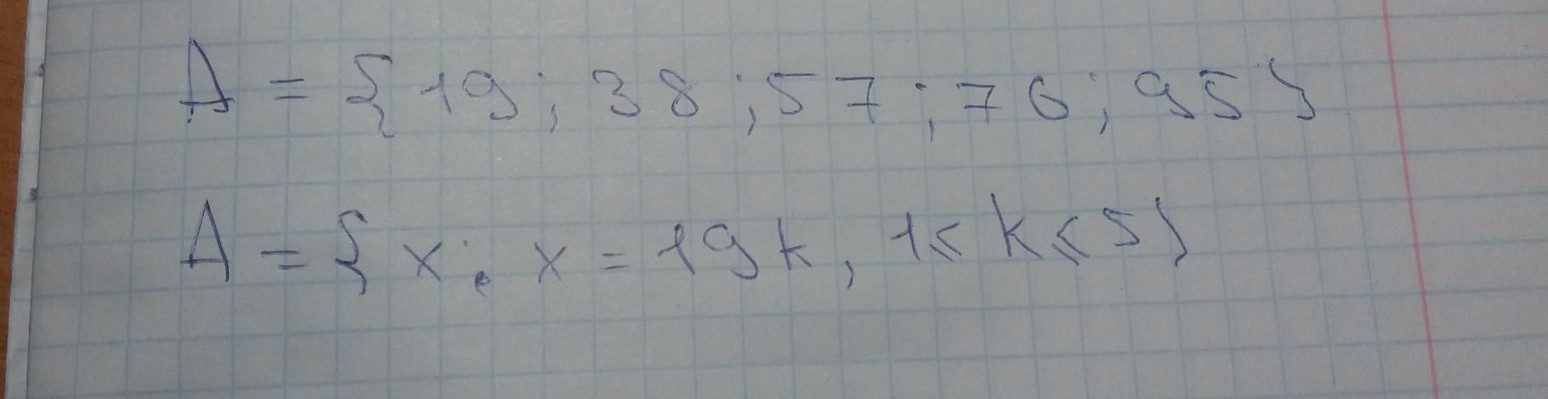 A = {19; 38; 57; 76; 95}
A = {x: x = 19k, 1 ≤ k ≤ 5}